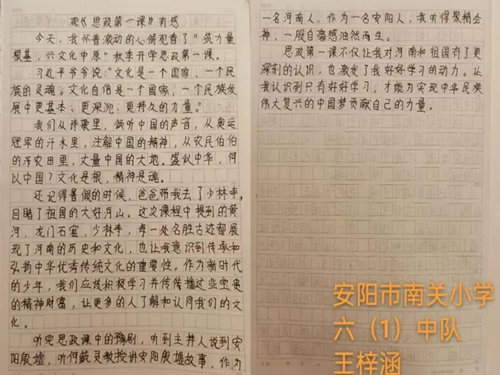 观《思政第一课》有感
今天，我怀着激动的心情观看了“筑力量
根基，兴文化中原”秋季开学思政第一课。
习近平爷爷说：“文化是一个国家、一个民
族的灵魂。文化自信是一个国家、一个民族发
展中更基本、更深沉、更持久的力量。”
我们从诗歌里，倾听中国的声音，从奥运
冠军的汗水里，注解中国的精神，从农民伯伯
的麦田里，丈量中国的大地。盛世中华，何
以中国？文化是根，精神是魂。
还记得暑假的时候，爸爸带我去了少林寺，
目睹了祖国的大好河山。这次课程中提到的黄
河，龙门石窟，少林寺，每一处名胜古迹都展
现了河南的历史和文化，也让我意识到传承和
弘扬中华优秀传统文化的重要性。作为新时代
的少年，我们应该积极学习并传播这些宝贵
的精神财富，让更多的人了解和认同我们的文
化。
听完思政课中的豫剧，听到主持人说到安
阳殷墟，听何毓灵教授讲安阳殷墟故事，作为
一名河南人，作为一名安阳人，我听得聚精会
神，一股自豪感油然而生。
思政第一课不仅让我对河南和祖国有了更
深刻的认识，也激发了我好好学习的动力。让
我认识到只有好好学习，才能为实现中华民族
伟大复兴的中国梦贡献自己的力量。
安阳市南关小学
六（1）中队
王梓涵